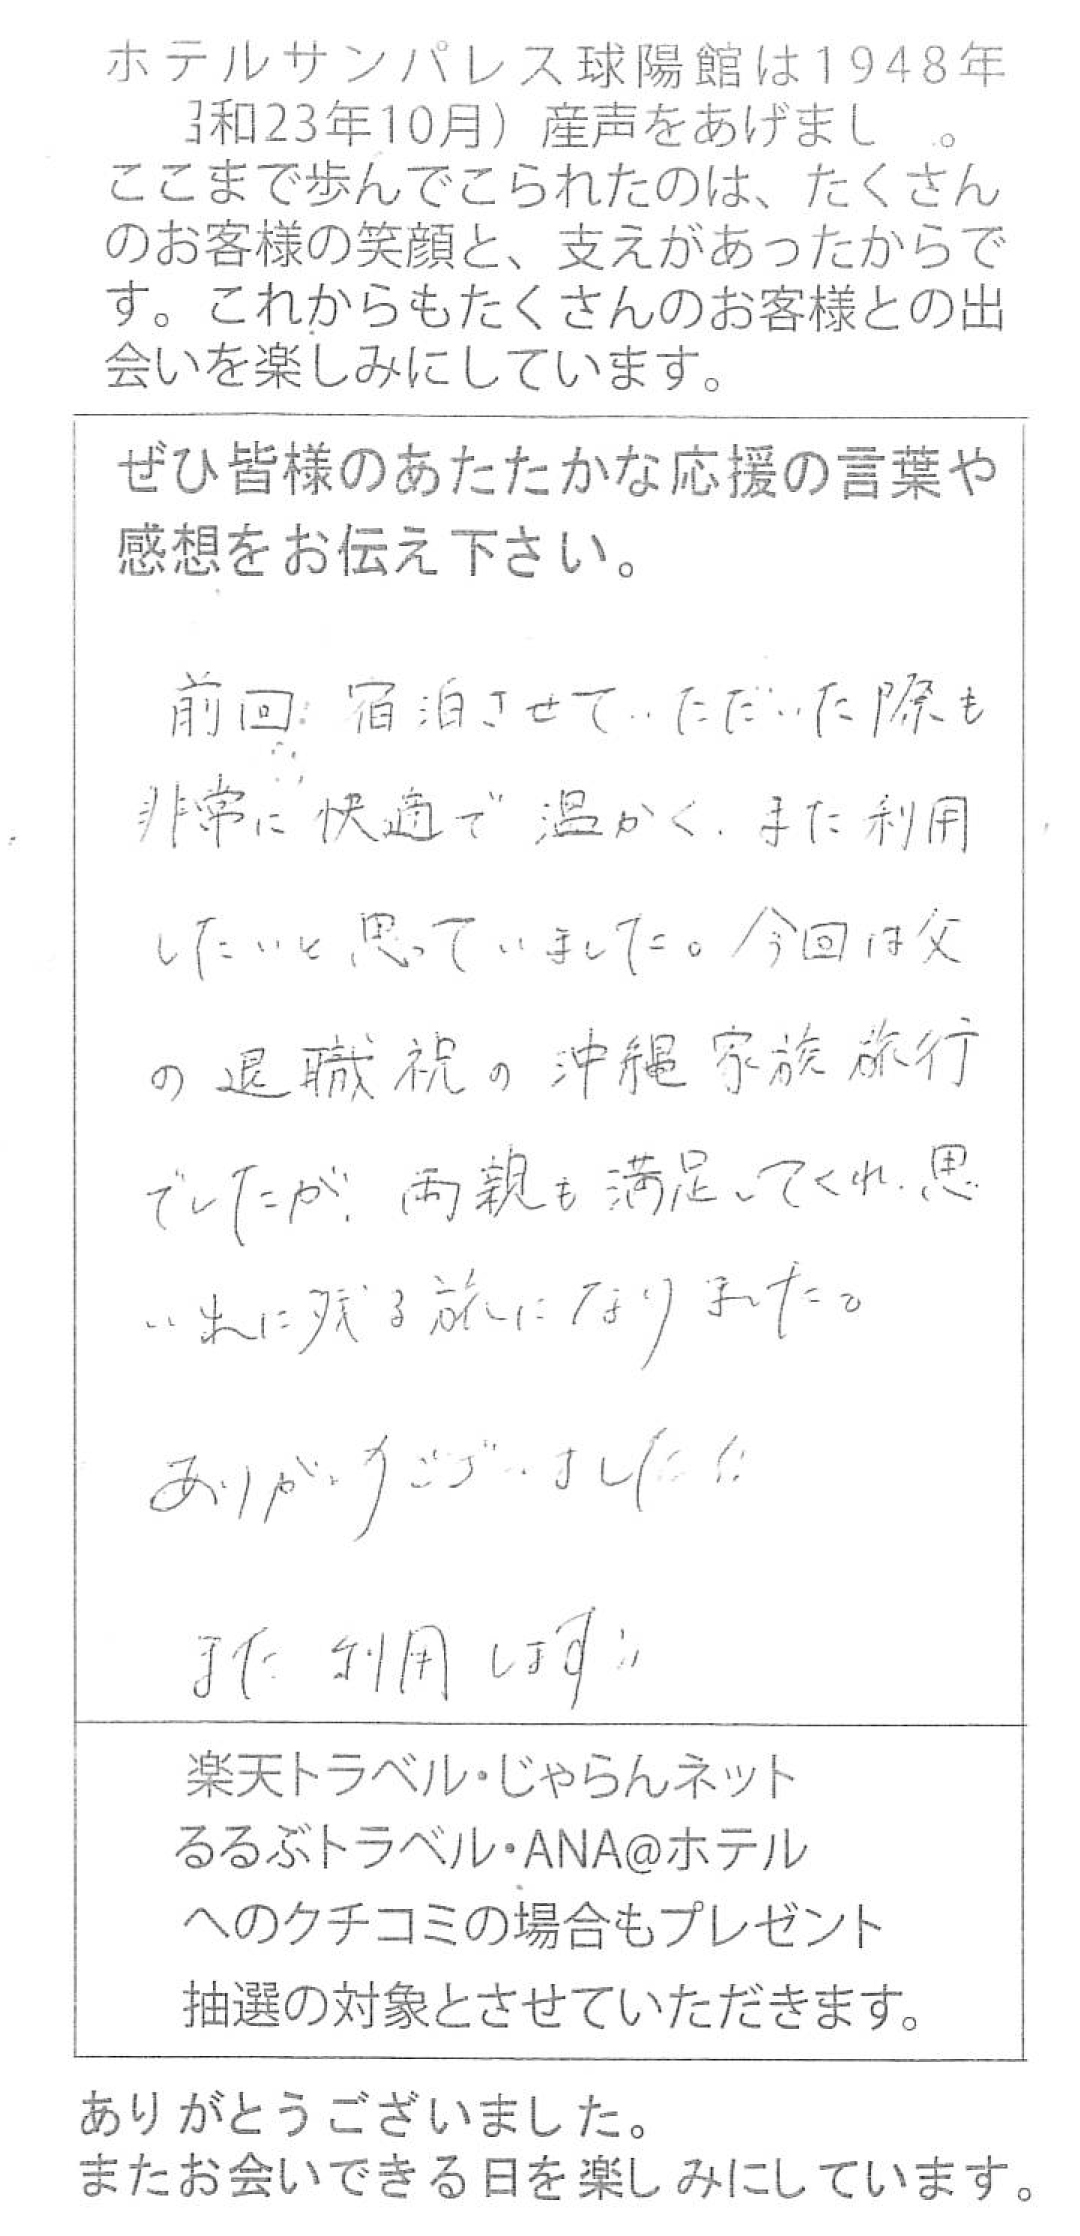 ホテルサンパレス球陽館は1948年
和23年10月）産声をあげまし 。
ここまで歩んでこられたのは、たくさん
のお客様の笑顔と、支えがあったからで
す。これからもたくさんのお客様との出
会いを楽しみにしています。
ぜひ皆様のあたたかな応援の言葉や
感想をお伝え下さい。
前回 宿泊させていただいた際も
非常に快適で温かく、また利用
したいと思っていました。今回は父
の退職祝の沖縄家族旅行
でしたが、両親も満足してくれ、思
い出に残る旅になりました。
ありがとうございました
また利用します
楽天トラベル・じゃらんネット
るるぶトラベル・ANA@ホテル
へのクチコミの場合もプレゼント
抽選の対象とさせていただきます。
ありがとうございました。
またお会いできる日を楽しみにしています。